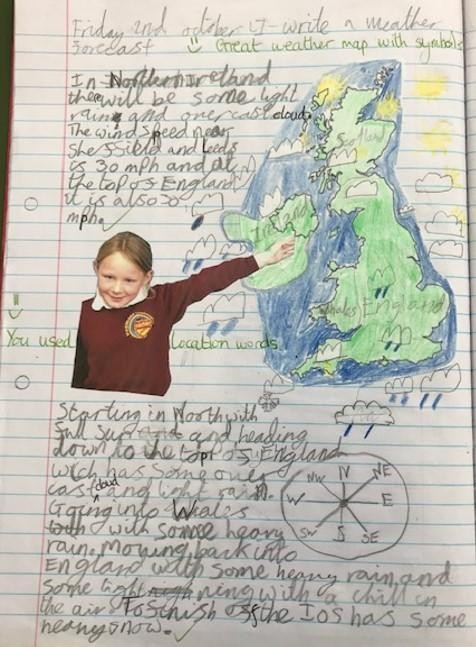 Friday 2nd october LI-write a weather
Forecast
Great weather map with symbols
In Northern ireland
there will be some light
rain and overcast clouds
The wind speed near
Sheffield and Leeds
is 30 mph and at
the top of England
it is also 30
mph.
Scotland
Ireland
Whales England
You used location words
Starting in North with
full sun and heading
down to the top of England
wich has some over
cast cloud and light rain.
Going into Wales
with some heavy
rain, moving back into
England with some heavy rain and
some lightning with a chill in
the air. To finish off the Ios has some
heavy snow.
N
NE
E
SE
S
SW
W
NW